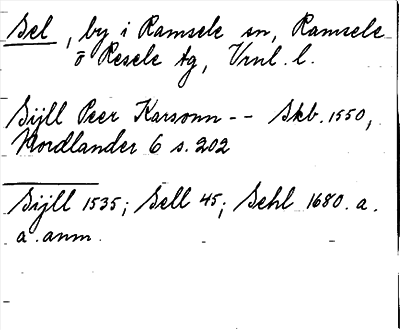 Sel, by i Ramsele sn, Ramsele
o Resele tg, Vrnl. l.
Sijll Peer Karsonn -- Skb. 1550,
Nordlander 6 s. 202
Sijll 1535; Sell 45; Sehl 1680. a.
a. anm.